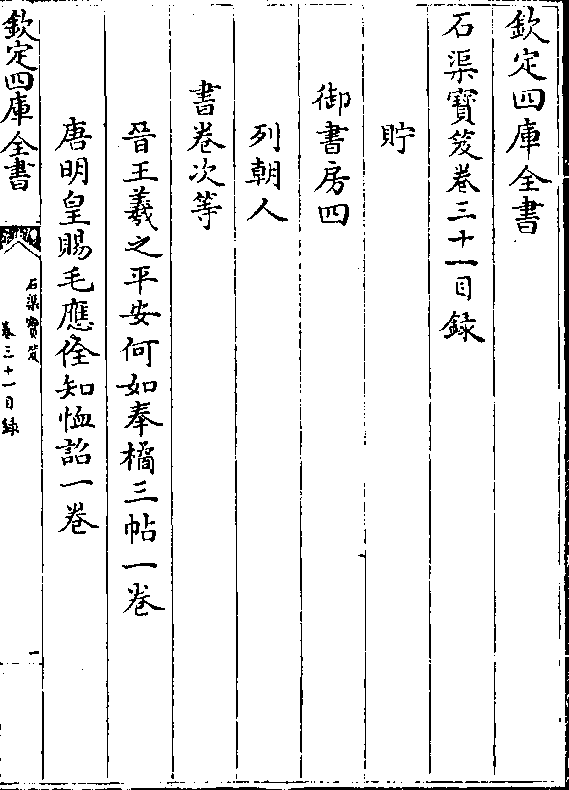 欽定四庫全書
石渠寳笈卷三十一目録
貯
御書房四
列朝人
書卷次等
晉王羲之平安何如奉橘三帖一卷
唐明皇賜毛應佺知恤詔一卷
欽定四庫全書
石渠寳笈
卷三十一目録
一